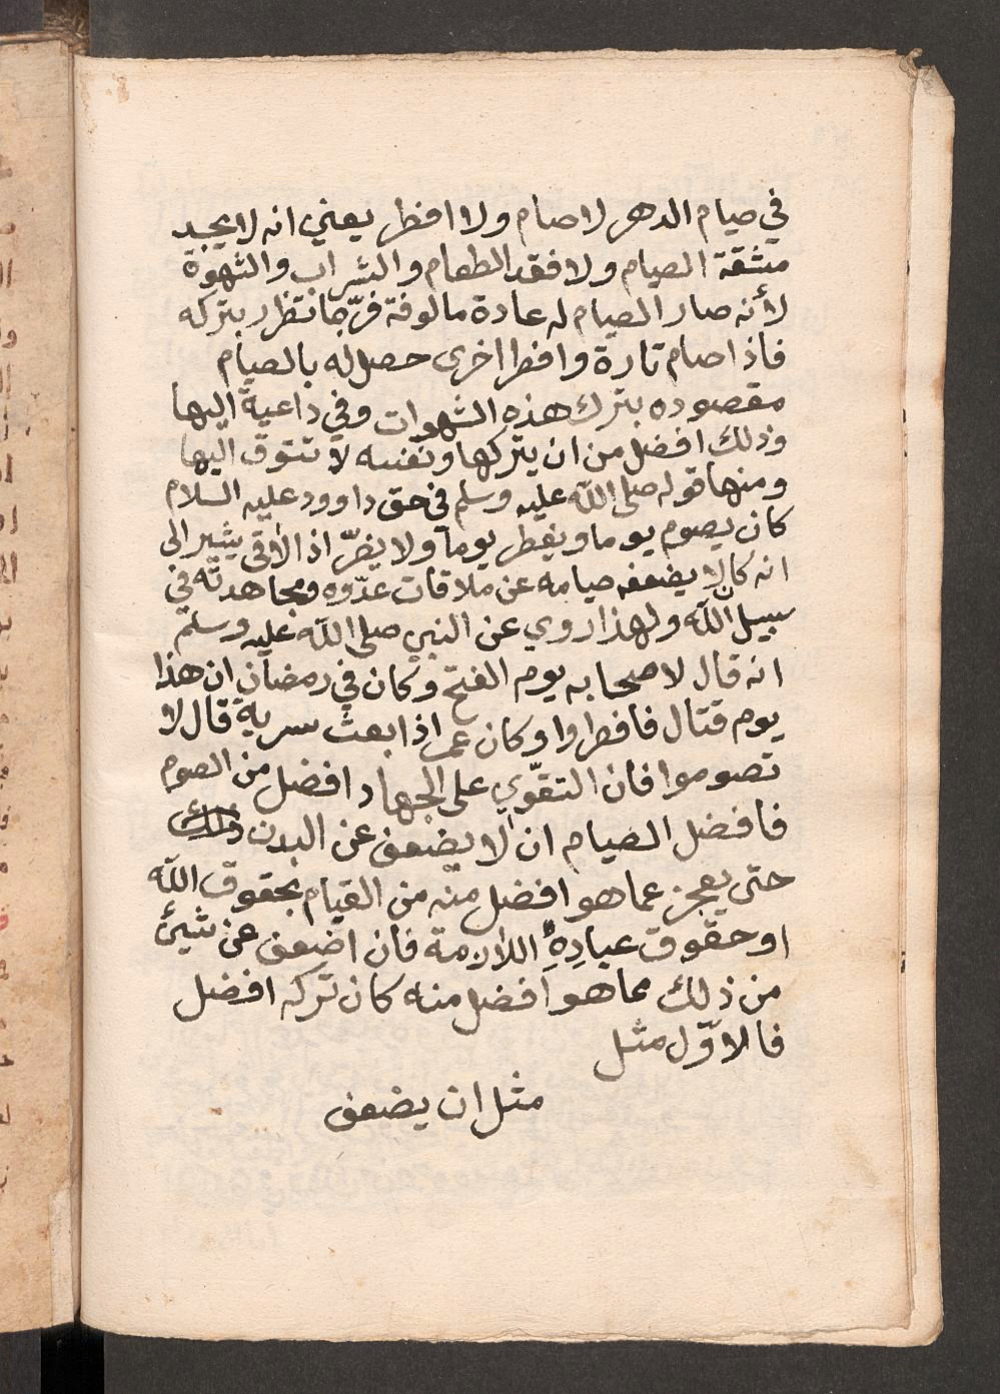 في صيام الدهر لا صام ولا افطر يعني انه لا يجد
مشقة الصيام ولا فقد الطعام والشراب والشهوة
لأنه صار الصيام له عادة مالوفة فرّبما تظرر بتركه
فاذا صام تارة وافطر اخرى حصل له بالصيام
مقصوده بترك هذه الشهوات وفي داعية اليها
وذلك افضل من ان يتركها ونفسه لا تتوق اليها
ومنها قوله صلى الله عليه وسلم في حق داوود عليه السلام
كان يصوم يوما ويفطر يوما ولا يفرّ اذا لاقى يشير الى
انه كان لا يضعفه صيامه عن ملاقات عدّوه ومجاهدته في
سبيل الله ولهذا روي عن النبي صلى الله عليه وسلم
انه قال لاصحابه يوم الفتح وكان في رمضان ان هذا
يوم قتال فافطروا وكان عمر اذا بعث سرية قال لا
تصوموا فان التقوّي على الجهاد افضل من الصوم
فافضل الصيام ان لا يضعف عن البدن ذلك
حتى يعجز عما هو افضل منه من القيام بحقوق الله
او حقوق عباده اللازمة فان اضعف عن شيئ
من ذلك مما هو افضل منه كان تركه افضل
فالاوّل مثل
مثل ان يضعف